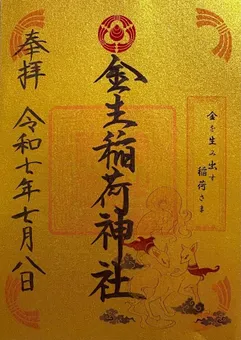 奉拝
金生稲荷神社
令和七年七月八日
金を生み出す
稲荷さま